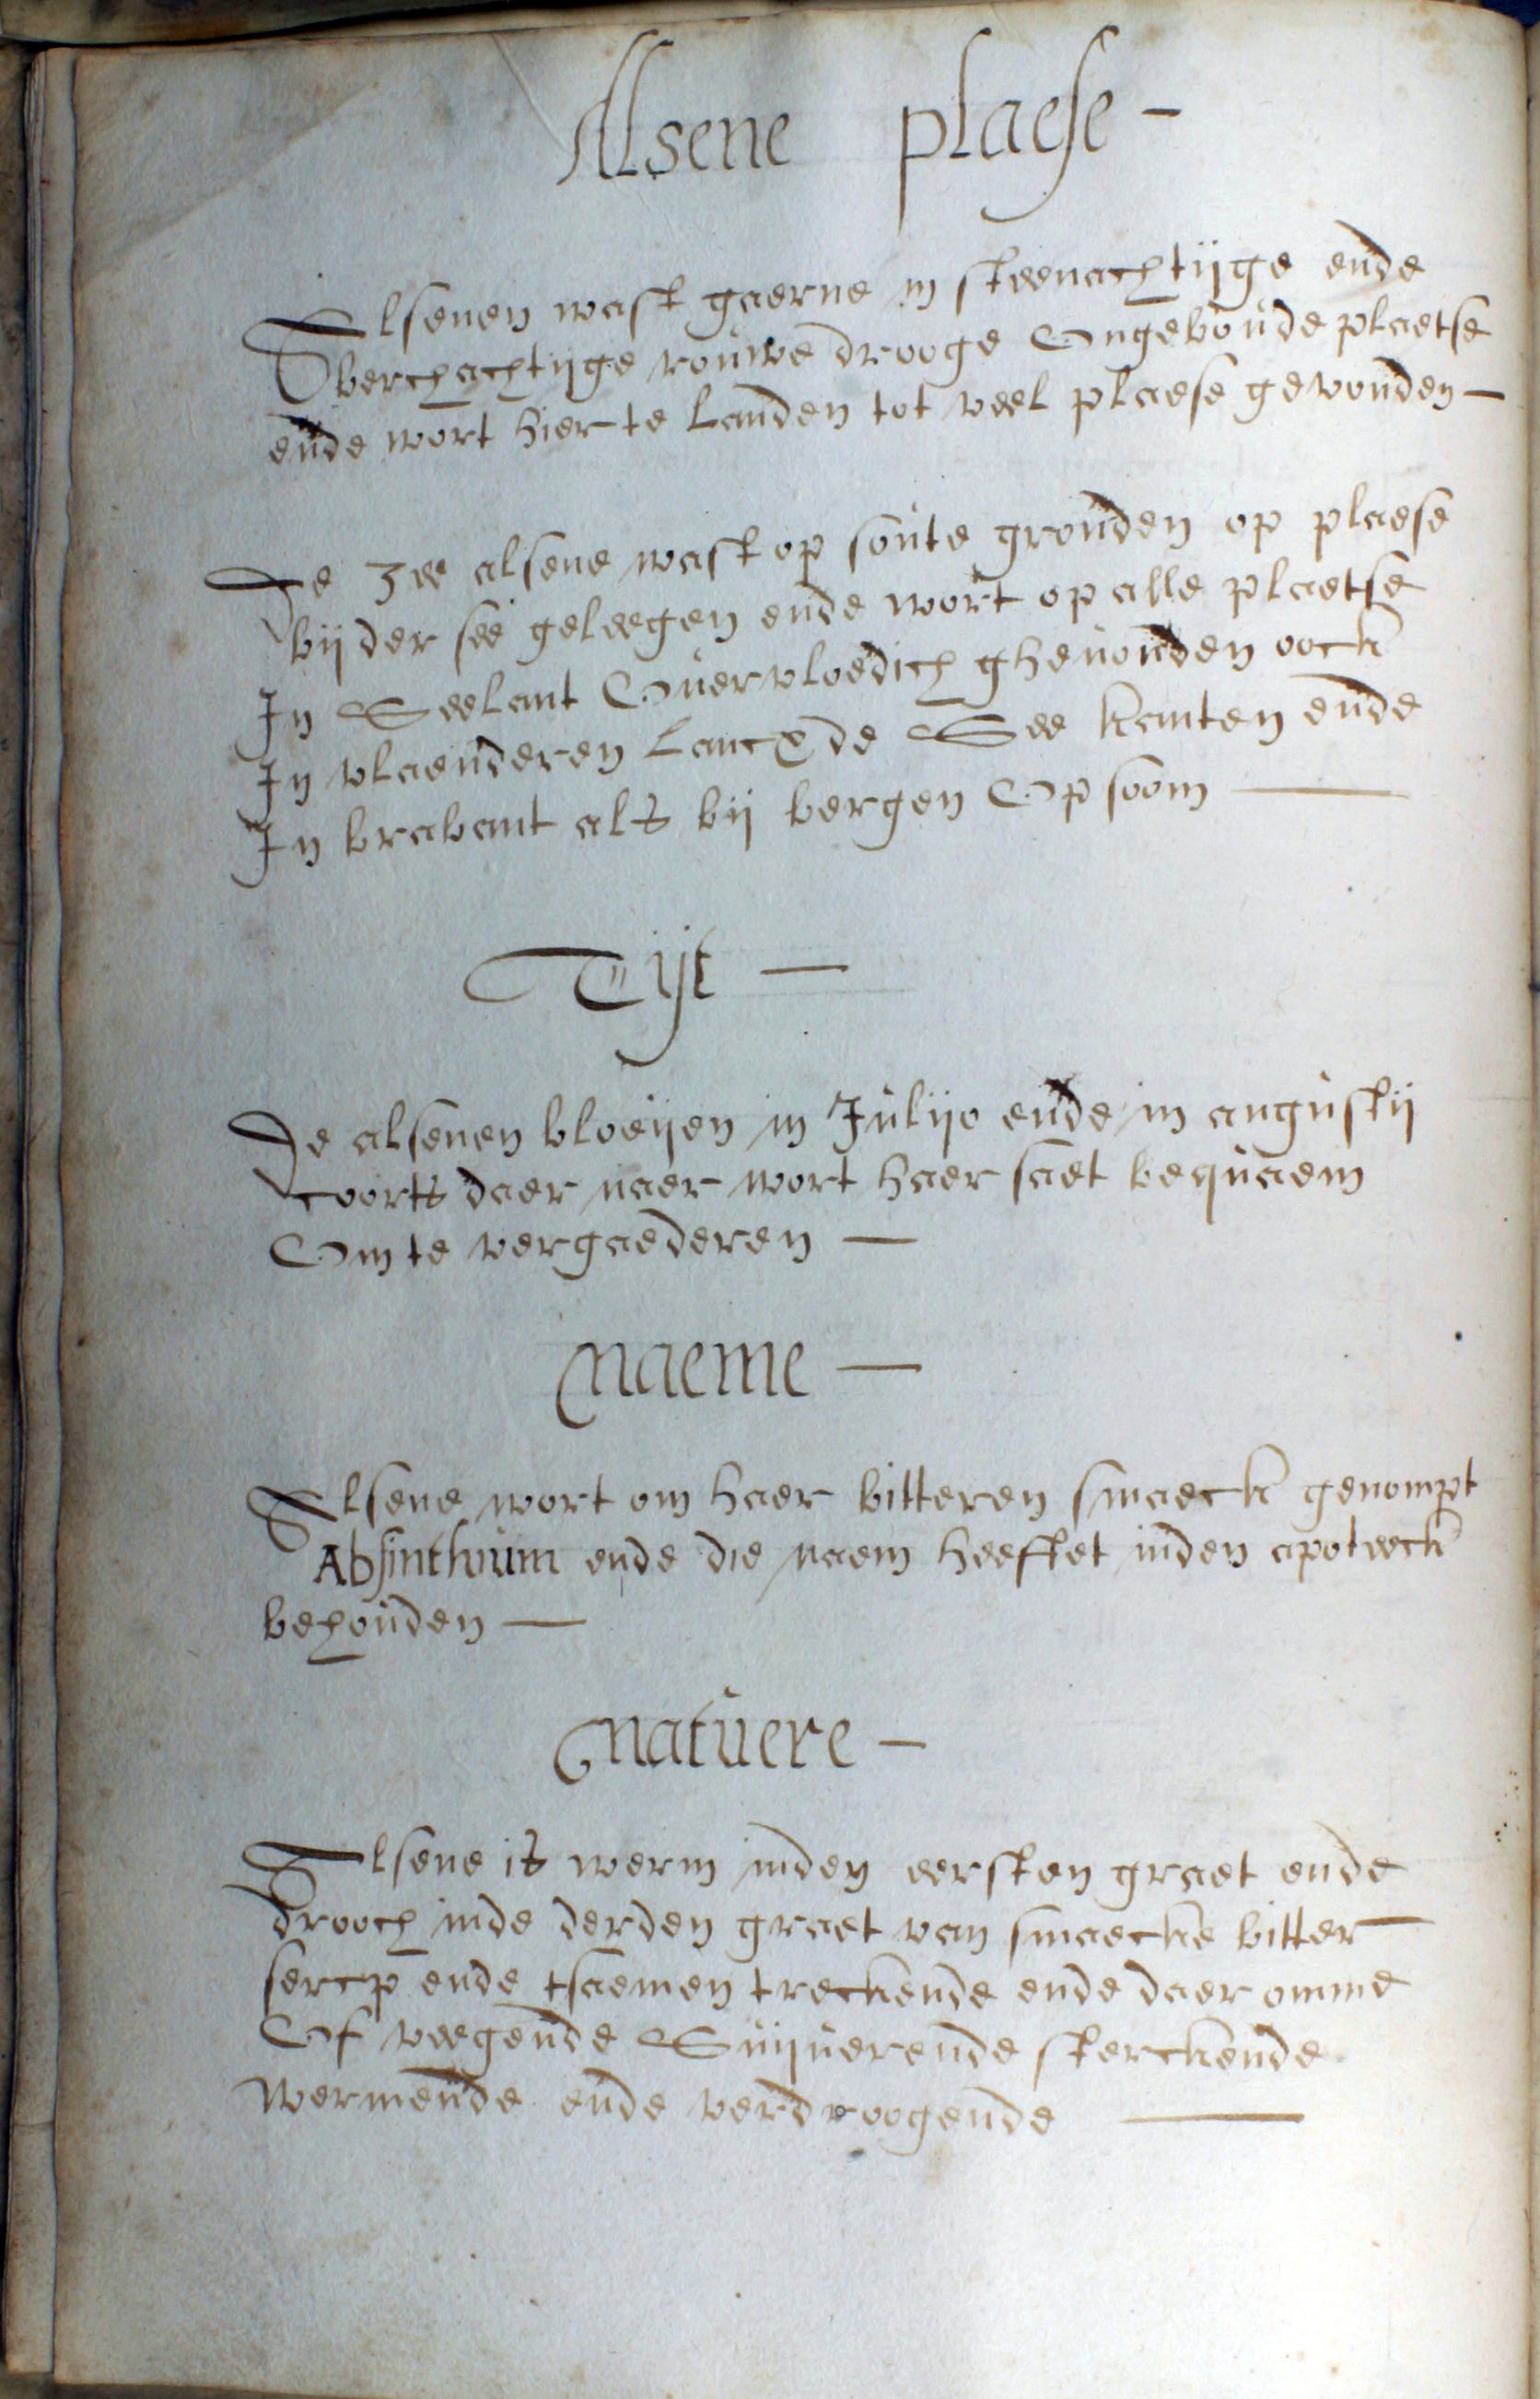 Alsene plaese -
Alsenen wast gaerne in steenachtijge ende
berchachtijge rouwe drooge Ongeboude plaetse
ende wort hier te Landen tot veel plaese gevonden -
De zee alsene wast op soute gronden op plaese
bij der see geleegen ende wort op alle plaetse
In Seelant Overvloedich ghevonden oock
In vlaenderen Lancx de See kanten ende
In brabant als bij bergen Op soom -
Tijt -
De alsenen bloeijen in Julijo ende in augustij
coorts daer naer wort haer saet bequaem
Om te vergaederen -
Naeme -
Alsene wort om haer bitteren smaeck genompt
Absinthium ende die naem heeftet inden apoteeck
behouden -
Natuere -
Alsene is werm inden eersten graet ende
drooch inde derden graet van smaecke bitter
sercp ende tsaemen treckende ende daer omme
Of veegende Suijverende sterckende
wermende ende verdroogende -